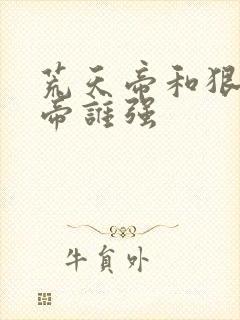 荒天帝和狠
帝誰强
牛貟外